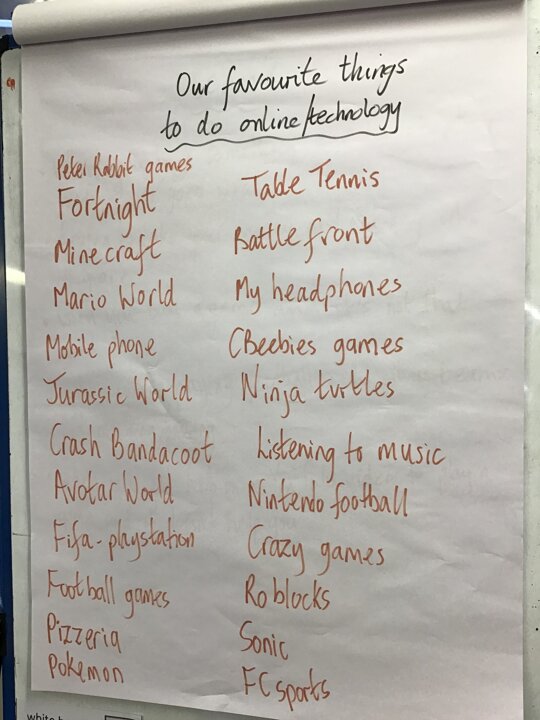 Our favourite things
to do online/technology
Peter Rabbit games
Fortnight
Minecraft
Mario World
Mobile phone
Jurassic World
Crash Bandacoot
Avatar World
Fifa-playstation
Football games
Pizzeria
Pokemon
Table Tennis
Battlefront
My headphones
CBeebies games
Ninja turtles
Listening to music
Nintendo football
Crazy games
Roblocks
Sonic
FC sports